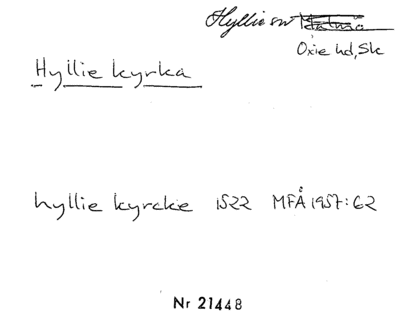 Hyllie sn
Oxie hd, Sk
Hyllie kyrka
hyllie kyrcke 1522 MFÅ 1957:62
Nr 21448